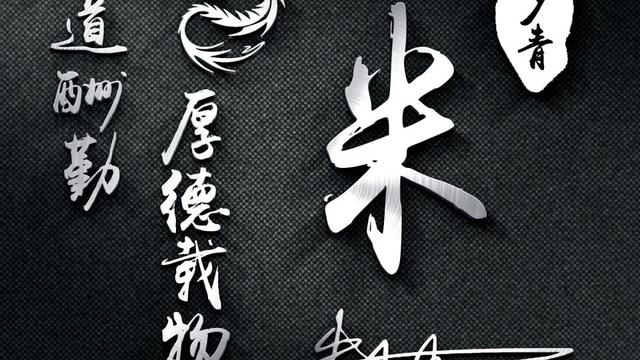 青
朱
厚德载物
道酬勤